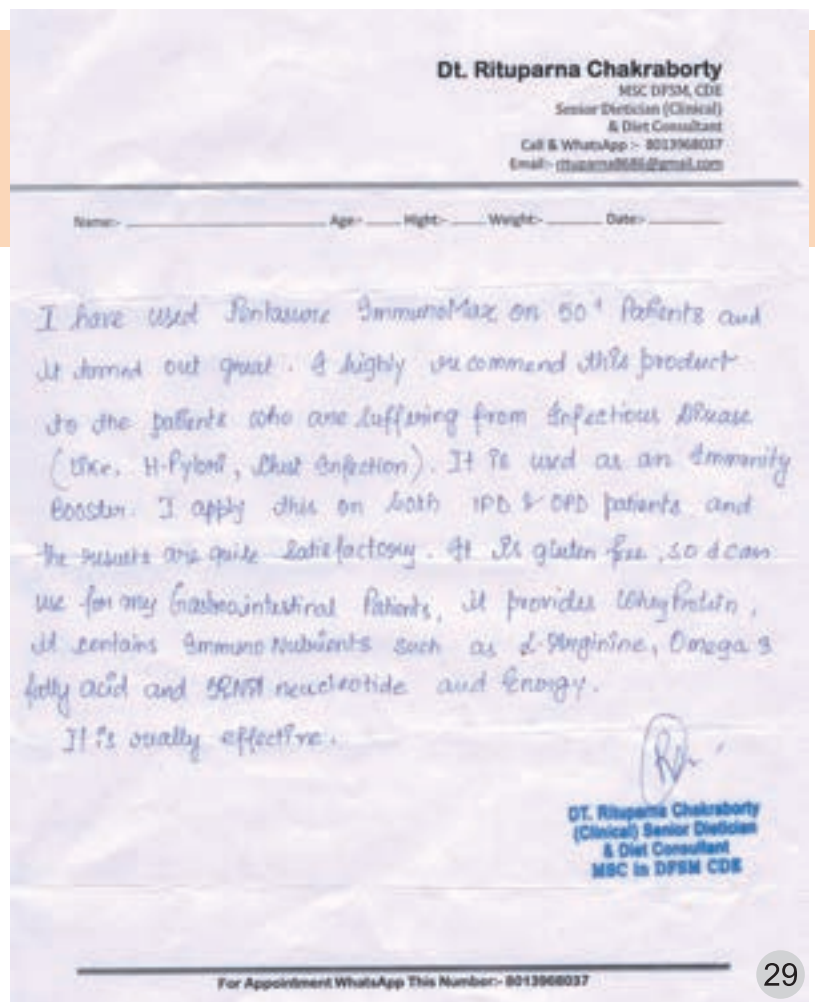 Dt. Rituparna Chakraborty
MSC DPSM, CDE
Senior Dietician (Clinical)
& Diet Consultant
Call & WhatsApp :- 8013968037
Email:- rituparna8686@gmail.com
Name:- Age:- Hight:- Weight:- Date:-
I have used Pentasure ImmunoMax on 50+ Patients and
it turned out great. I highly recommend this product
to the patients who are suffering from Infectious Disease
(Like, H-Pylori, Chest Infection). It is used as an Immunity
Booster. I apply this on both IPD & OPD patients and
the results are quite satisfactory. It is gluten free, so I can
use for my Gastrointestinal Patients, it provides Whey Protein,
it contains Immuno Nutrients such as L-Arginine, Omega 3
fatty acid and neucleotide and Energy.
It is really effective.
DT. Rituparna Chakraborty
(Clinical) Senior Dietician
& Diet Consultant
MSC in DPSM CDE
For Appointment WhatsApp This Number:- 8013968037
29